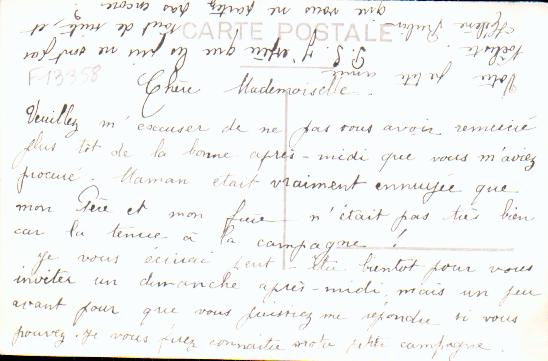 CARTE POSTALE
F13358
Chère Mademoiselle.
Veuillez m'excuser de ne pas vous avoir remercié
plus tôt de la bonne après-midi que vous m'aviez
procuré. Maman était vraiment ennuyée que
mon Père et mon frère n'était pas très bien
car la tenue à la campagne !
Je vous écrirai peut-être bientôt pour vous
inviter un dimanche après-midi, mais un peu
avant pour que vous puissiez me répondre si vous
pouvez. Je vous ferez connaître notre petite campagne.
Votre petite amie
Hélène
P.S. J'espère que
tout de suite, et
que vous ne partez pas encore ?